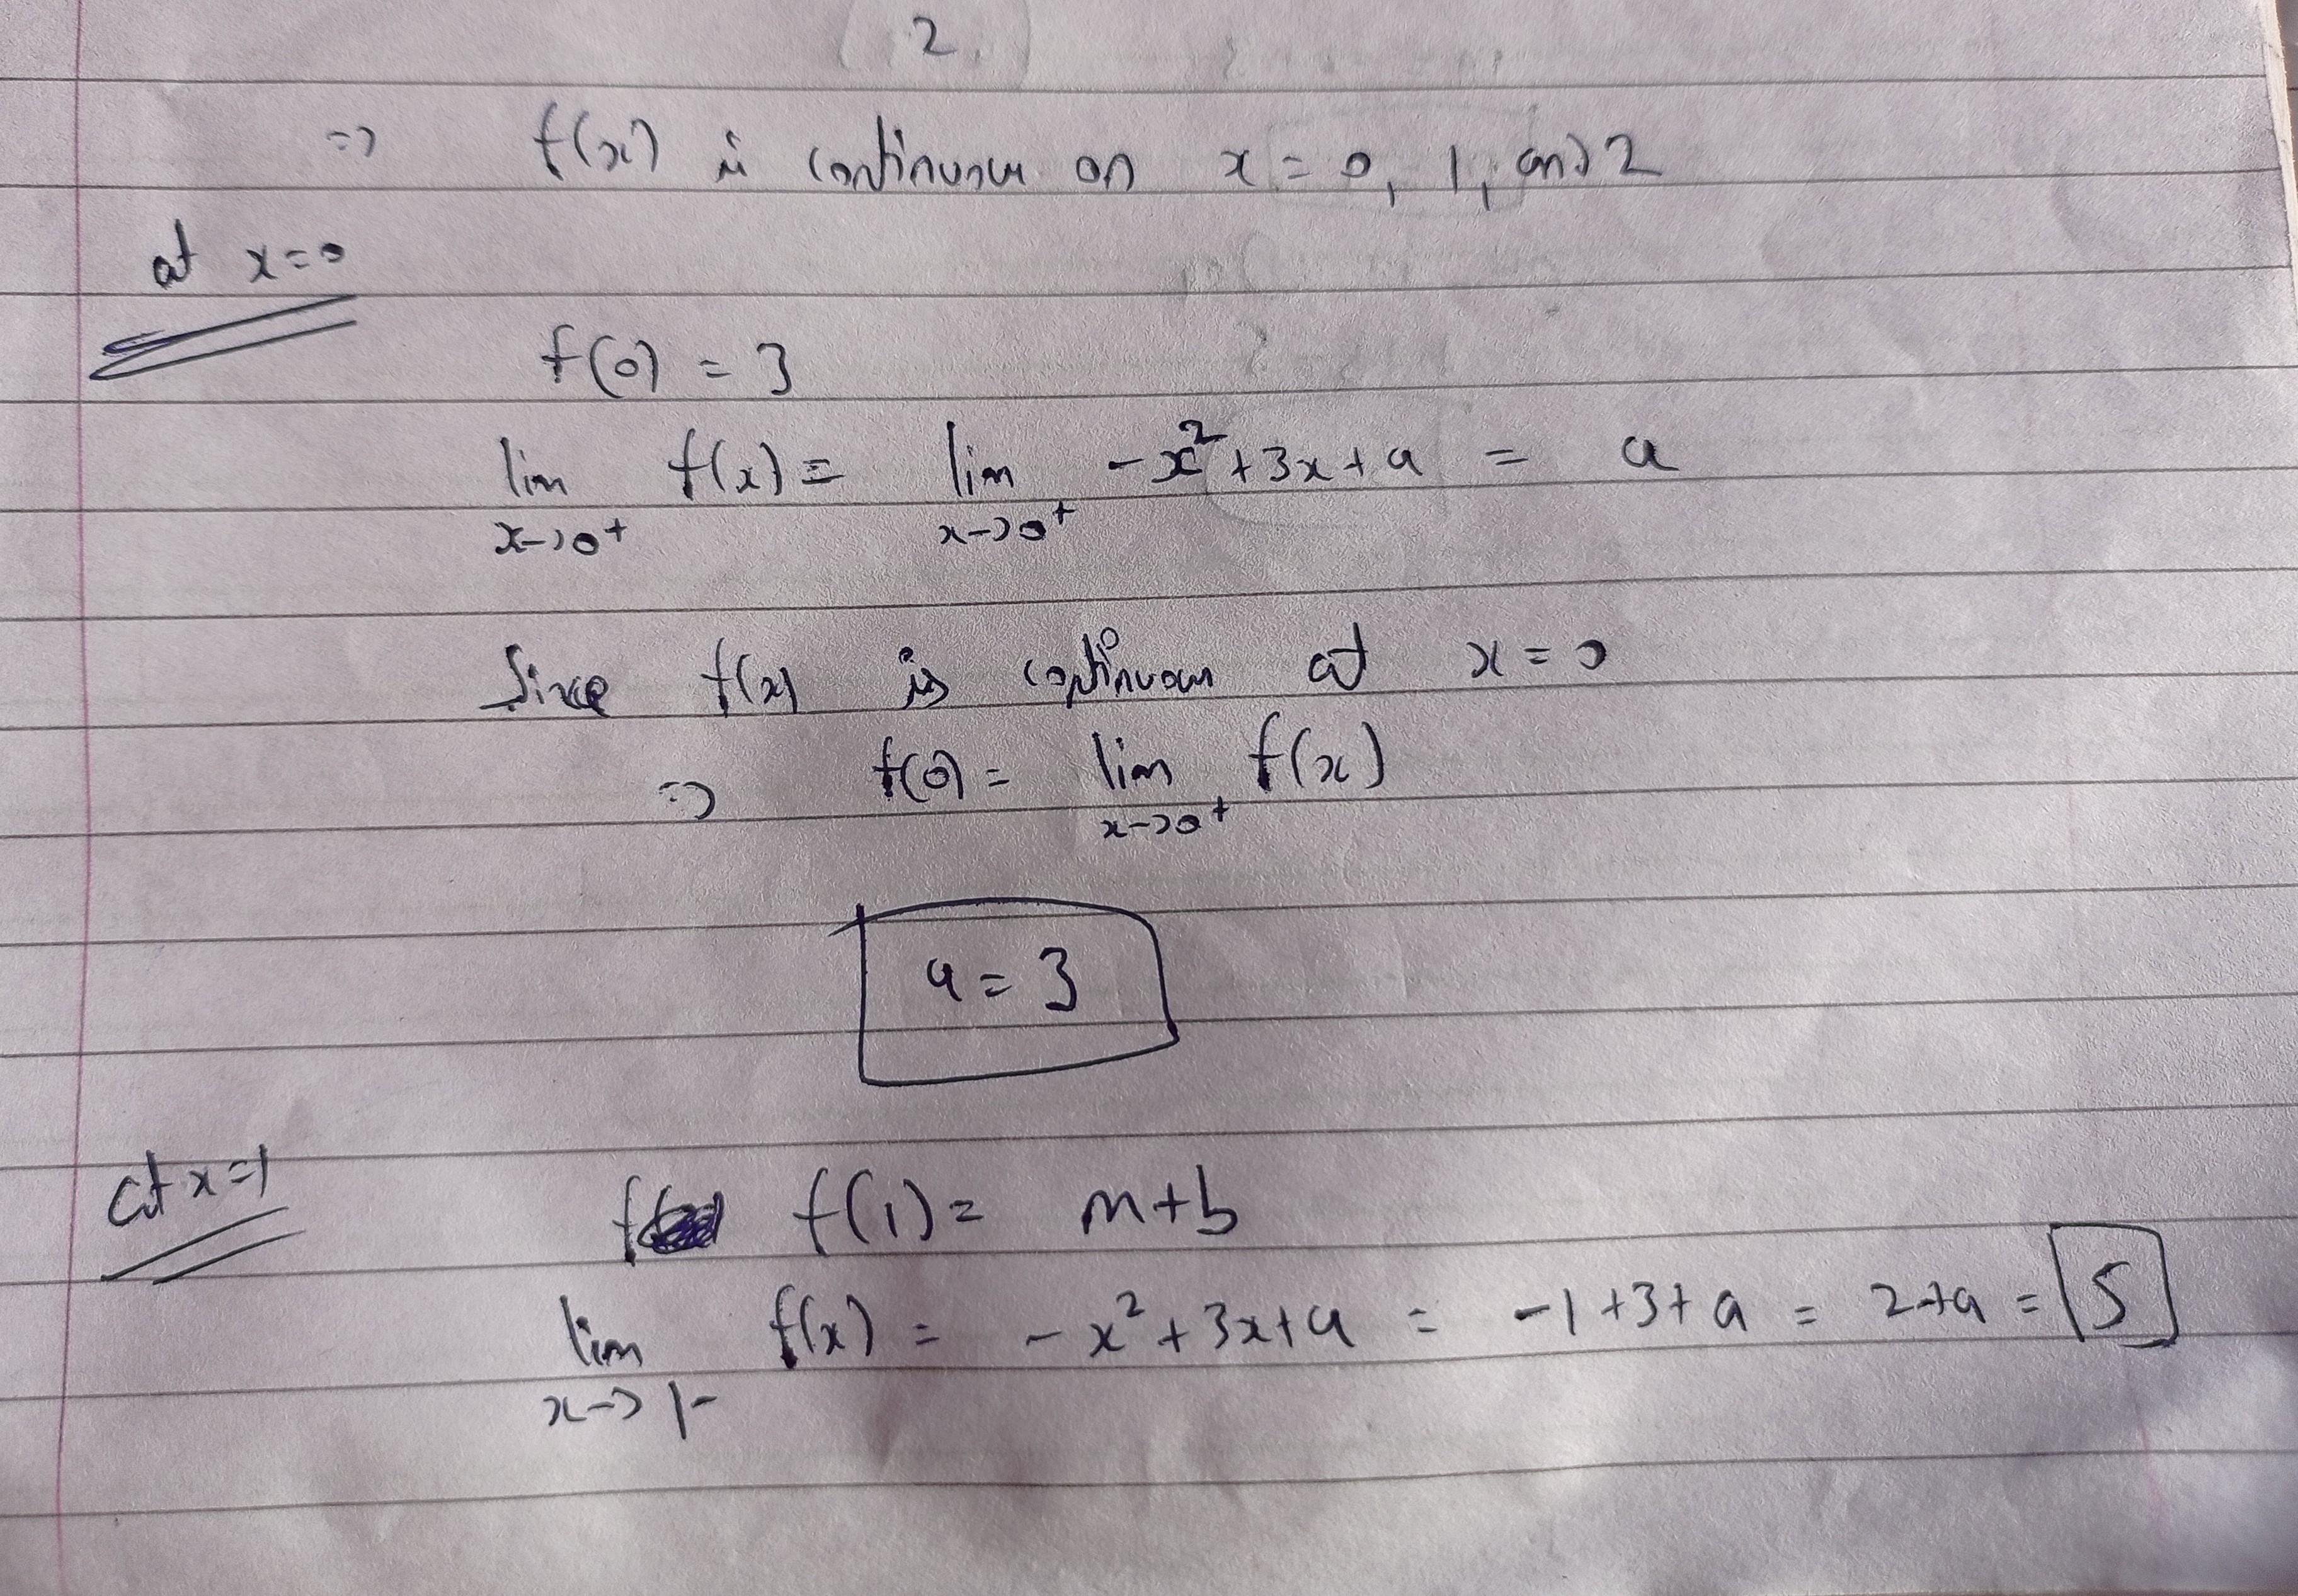 2
=> f(x) is continuous on x = 0, 1, and 2
at x=0
f(0) = 3
lim f(x) = lim -x²+3x+a = a
x->0+ x->0+
Since f(x) is continuous at x=0
=> f(0) = lim f(x)
x->0+
a = 3
at x=1
f f(1) = m+b
lim f(x) = -x²+3x+a = -1+3+a = 2+a = 5
x->1-